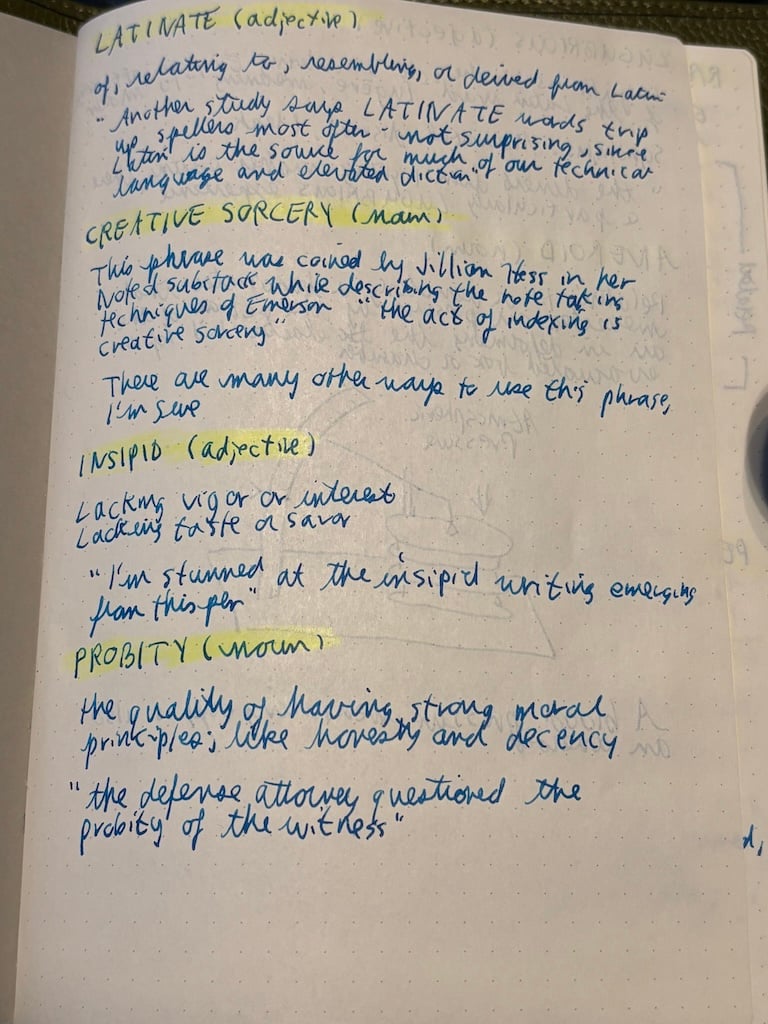 LATINATE (adjective)
of, relating to, resembling, or derived from Latin
"Another study says LATINATE words trip
up spellers most often - not surprising, since
Latin is the source for much of our technical
language and elevated diction"
CREATIVE SORCERY (noun)
This phrase was coined by Jillian Hess in her
Noted substack while describing the note taking
techniques of Emerson "the act of indexing is
creative sorcery"
There are many other ways to use this phrase,
I'm sure
INSIPID (adjective)
Lacking vigor or interest
Lacking taste or savor
"I'm stunned at the insipid writing emerging
from this pen"
PROBITY (noun)
the quality of having strong moral
principles; like honesty and decency
"the defense attorney questioned the
probity of the witness"